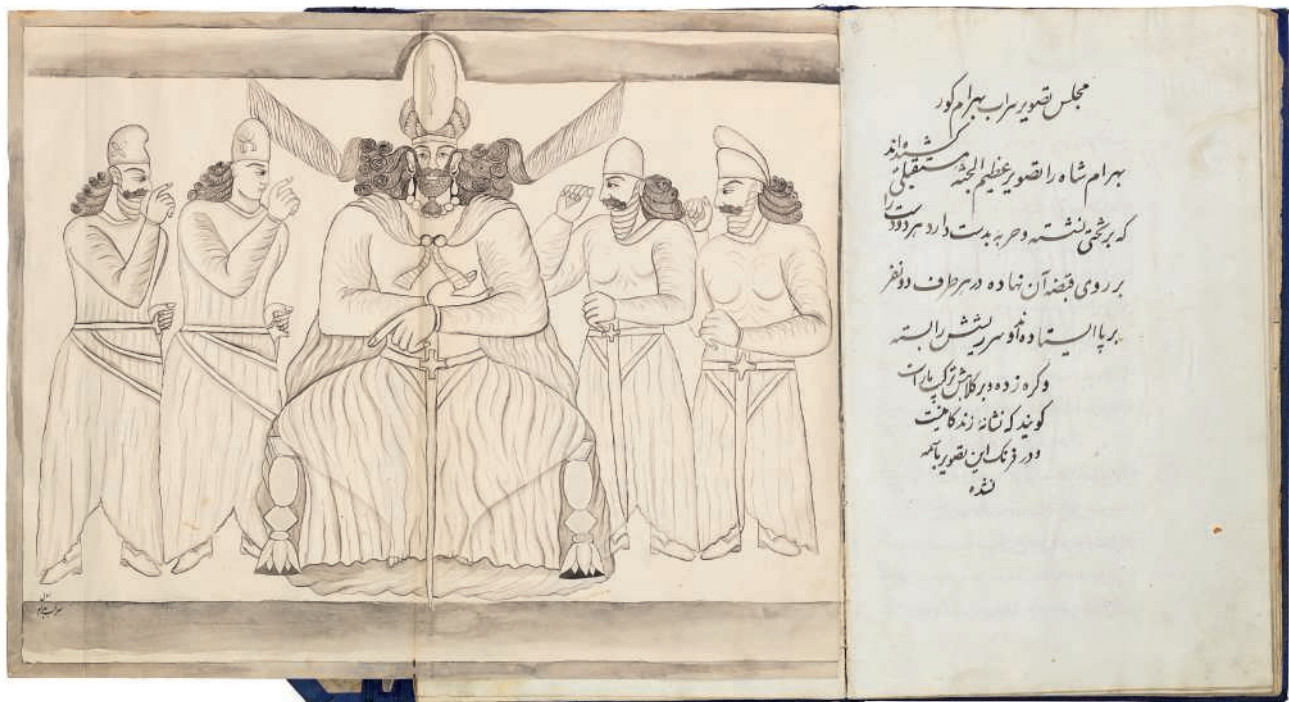 مجلس تصویر سراب بهرام کور
بهرام شاه را تصویر عظیم الجثه مستقبلی کشیده‌اند
که بر تختی نشسته و حربه بدست دارد هر دو دست را
بر روی قبضه آن نهاده در هر طرف دو نفر
بر پا ایستاده‌اند و سر ریشش را بسته
و کره زده و بر کلاهش ترک پاره است
کویند که نشانه زندکانیست
و در فرنک این تصویر باسمه
نشده
سراب بهرام